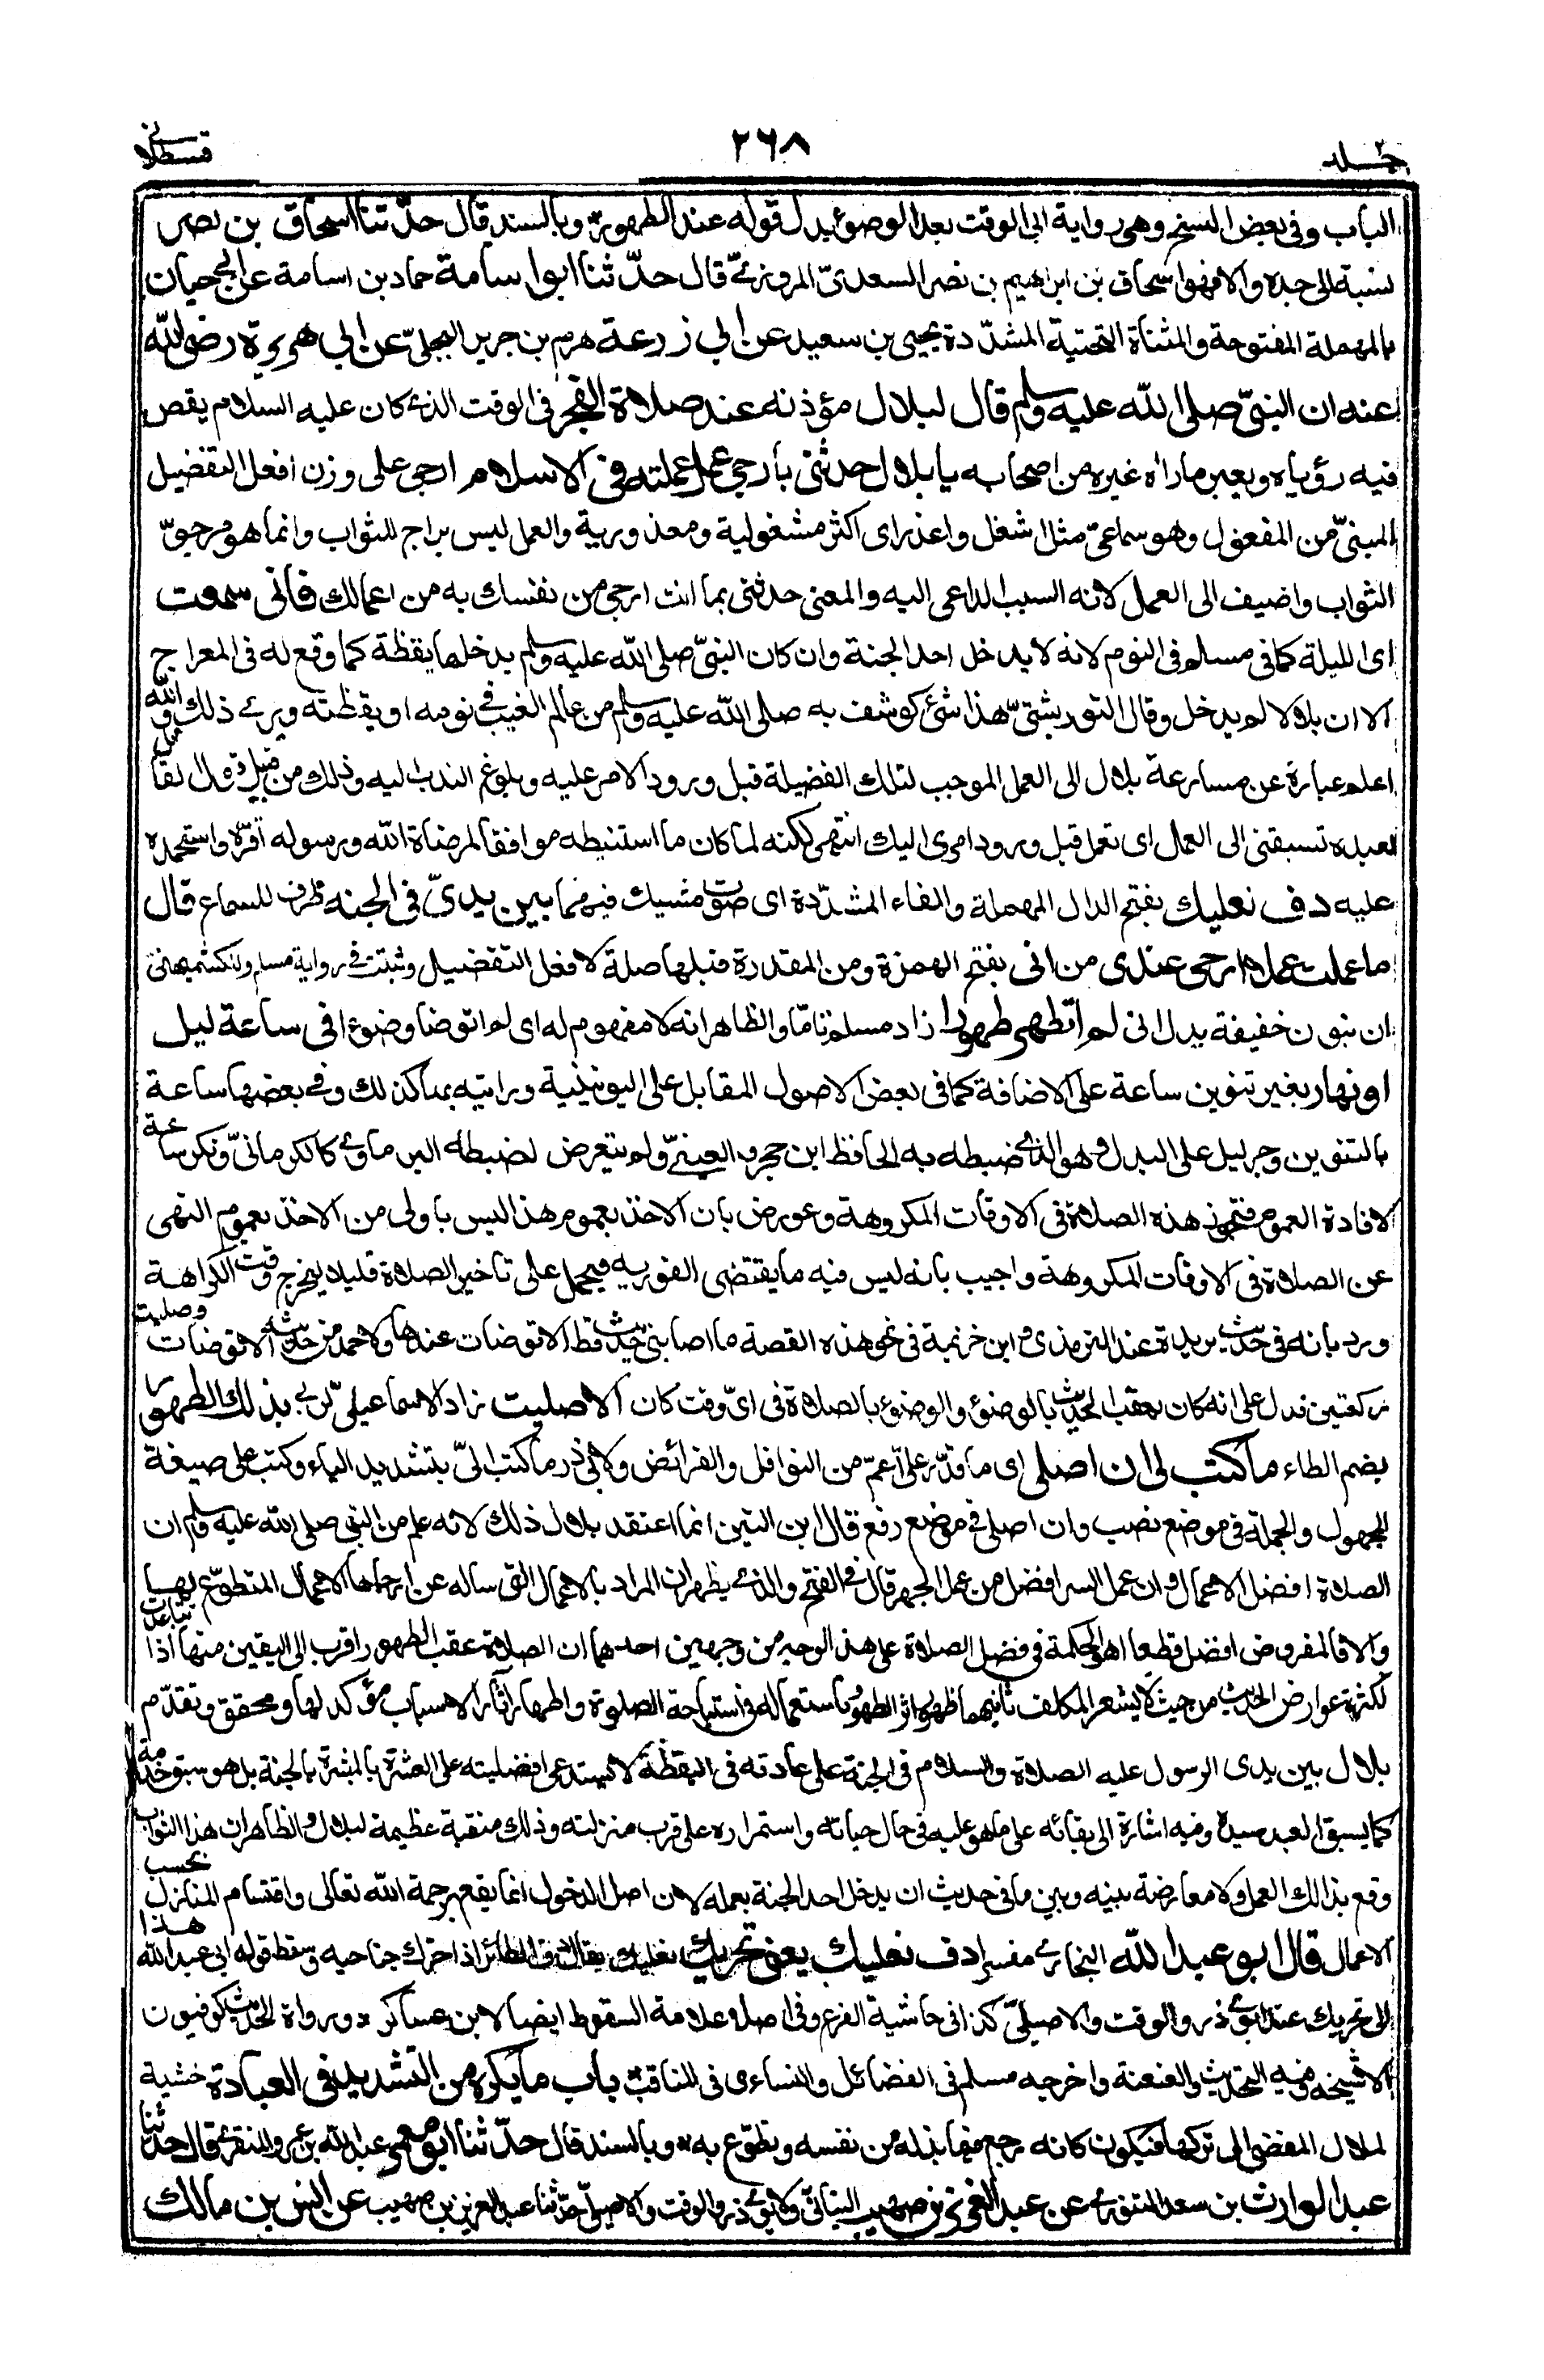 جلد ٢
٢٦٨
قسطلانى
الباب وفى بعض النسخ وهى رواية ابى الوقت بعد الوضوء بدل قوله عند الطهور وبالسند قال حدّثنا اسحاق بن نصر
نسبة الى جده والا فهو اسحاق بن ابراهيم بن نصر السعدىّ المروزىّ قال حدّثنا ابو اسامة حماد بن اسامة عن ابى حيان
بالمهملة المفتوحة والمثناة التحتية المشدّدة يحيى بن سعيد عن ابي زرعة هرم بن جرير البجلىّ عن ابي هريرة رضى الله
عنه ان النبىّ صلى الله عليه وسلم قال لبلال مؤذنه عند صلاة الفجر فى الوقت الذى كان عليه السلام يقص
فيه رؤياه ويعبر ما رآه غيره من اصحابه يا بلال حدثنى بأرجى عمل عملته فى الاسلام ارجى على وزن افعل التفضيل
المبنىّ من المفعول وهو سماعىّ مثل اشغل واعذر اى اكثر مشغولية ومعذورية والعمل ليس براج للثواب وانما هو مرجوّ
الثواب واضيف الى العمل لانه السبب الداعى اليه والمعنى حدثنى بما انت ارجى من نفسك به من اعمالك فانى سمعت
اى الليلة كما فى مسلم فى النوم لانه لا يدخل احد الجنة وان كان النبىّ صلى الله عليه وسلم يدخلها يقظة كما وقع له فى المعراج
الا ان بلالا لم يدخل وقال التوربشتىّ هذا شئ كوشف به صلى الله عليه وسلم من عالم الغيب فى نومه او يقظته ويرى ذلك والله
اعلم عبارة عن مسارعة بلال الى العمل الموجب لتلك الفضيلة قبل ورود الامر عليه وبلوغ الندب اليه وذلك من قبيل قول القائل
لعبده تسبقنى الى العمل اى تعمل قبل ورود امرى اليك انتهى لكنه لما كان ما استنبطه موافقا لمرضاة الله ورسوله اقرّه واستحمده
عليه دف نعليك بفتح الدال المهملة والفاء المشدّدة اى صوت مشيك فيهما بين يدىّ فى الجنه ظرف للسماع قال
ما عملت عملا ارجى عندى من انى بفتح الهمزة ومن المقدرة قبلها صلة لافعل التفضيل وثبتت فى رواية مسلم وللكشميهنى
ان بنون خفيفة بدل انى لم اتطهر طهورا زاد مسلم تامّا والظاهر انه لا مفهوم له اى لم اتوضا وضوءا فى ساعة ليل
او نهار بغير تنوين ساعة على الاضافة كما فى بعض الاصول المقابل على اليونينية ورايته بها كذلك وفى بعضها ساعة
بالتنوين وجر ليل على البدل وهو الذى ضبطه به الحافظ ابن حجر والعينىّ ولم يتعرض لضبطه البرماوى كالكرمانىّ ونكر ساعة
لافادة العموم فتجوز هذه الصلاة فى الاوقات المكروهة وعورض بان الاخذ بعموم هذا ليس باولى من الاخذ بعموم النهى
عن الصلاة فى الاوقات المكروهة واجيب بانه ليس فيه ما يقتضى الفورية فيحمل على تاخير الصلاة قليلا ليخرج وقت الكراهة
ورد بانه فى حديث بريدة عند الترمذى وابن خزيمة فى نحو هذه القصة ما اصابنى حدث قط الا توضات عندها ولاحمد من حديثه الا توضات وصليت
ركعتين فدل على انه كان يعقب الحدث بالوضوء والوضوء بالصلاة فى اىّ وقت كان الا صليت زاد الاسماعيلىّ لربى بذلك الطهور
بضم الطاء ما كتب لى ان اصلى اى ما قدّر علىّ اعمّ من النوافل والفرائض ولابى ذر ما كتب الىّ بتشديد الياء وكتب على صيغة
المجهول والجملة فى موضع نصب وان اصلى فى موضع رفع قال ابن التين انما اعتقد بلال ذلك لانه علم من النبى صلى الله عليه وسلم ان
الصلاة افضل الاعمال وان عمل السر افضل من عمل الجهر قال فى الفتح والذى يظهر ان المراد بالاعمال التى ساله عن ارجاها الاعمال المتطوّع بها
والا فالمفروض افضل قطعا اهـ والحكمة فى فضل الصلاة على هذا الوجه من وجهين احدهما ان الصلاة عقب الطهور اقرب الى اليقين منها اذا تباعدت
لكثرة عوارض الحدث من حيث لا يشعر المكلف ثانيهما ظهور اثر الطهور باستعماله فى استباحة الصلوة واظهار آثار الاسباب مؤكد لها ومحقق وتقدّم
بلال بين يدى الرسول عليه الصلاة والسلام فى الجنة على عادته فى اليقظة لا يستدعى افضليته على العشرة المبشرة بالجنة بل هو سبق خدمة
كما يسبق العبد سيده وفيه اشارة الى بقائه على ما هو عليه فى حال حياته واستمراره على قرب منزلته وذلك منقبة عظيمة لبلال والظاهر ان هذا الثواب
وقع بذالك العمل ولا معارضة بينه وبين ما فى حديث ان يدخل احد الجنة بعمله لان اصل الدخول انما يقع برحمة الله تعالى واقتسام المنازل بحسب
الاعمال قال ابو عبد الله البخارى مفسرا دف نعليك يعنى تحريك نعليك يقال دف الطائر اذا حرك جناحيه وسقط قوله ابى عبد الله هذا
الى تحريك عند ابوى ذر والوقت والاصيلىّ كذا فى حاشية الفرع وفى اصله علامة السقوط ايضا لابن عساكر ورواة الحديث كوفيون
الا شيخه وفيه التحديث والعنعنة واخرجه مسلم فى الفضائل والنساءى فى المناقب باب ما يكره من التشديد فى العبادة خشية
الملال المفضى الى تركها فيكون كانه رجع فيما بذله من نفسه وتطوّع به وبالسند قال حدّثنا ابو معمر عبد الله بن عمرو المنقرى قال حدثنا
عبد الوارث بن سعد التنورى عن عبد العزيز بن صهيب البنانىّ ولابوى ذر والوقت والاصيلىّ حدّثنا عبد العزيز بن صهيب عن انس بن مالك